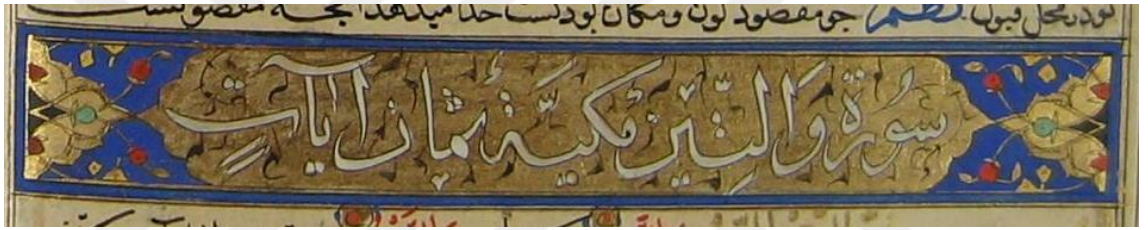 بود در محل قبول نظم چو مقصود کون و مکان بود تست خدا میدهد آنچه مقصود تست
سُورَةُ وَالتِّيْنِ مَكِّيَّة ثمان آيَاتٍ